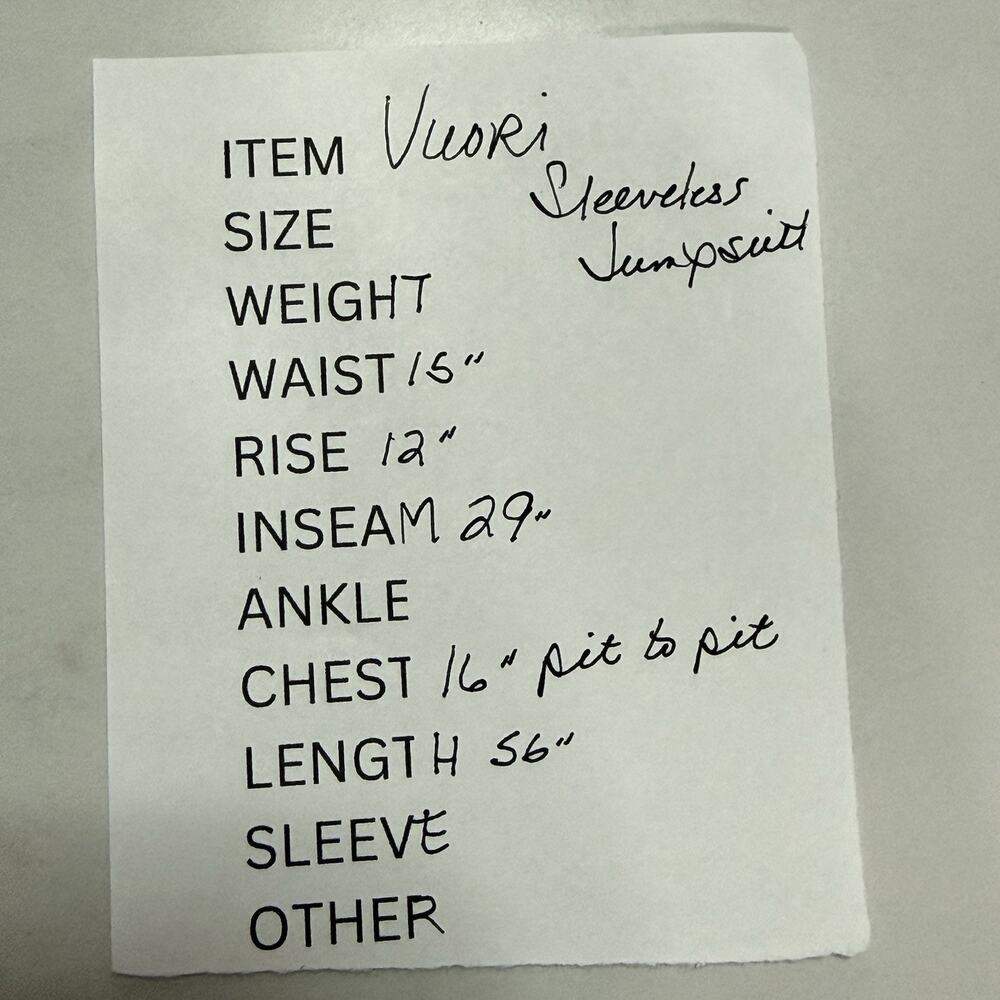 ITEM Vuori
Sleeveless
SIZE
Jumpsuit
WEIGHT
WAIST 15"
RISE 12"
INSEAM 29"
ANKLE
CHEST 16" pit to pit
LENGTH 56"
SLEEVE
OTHER